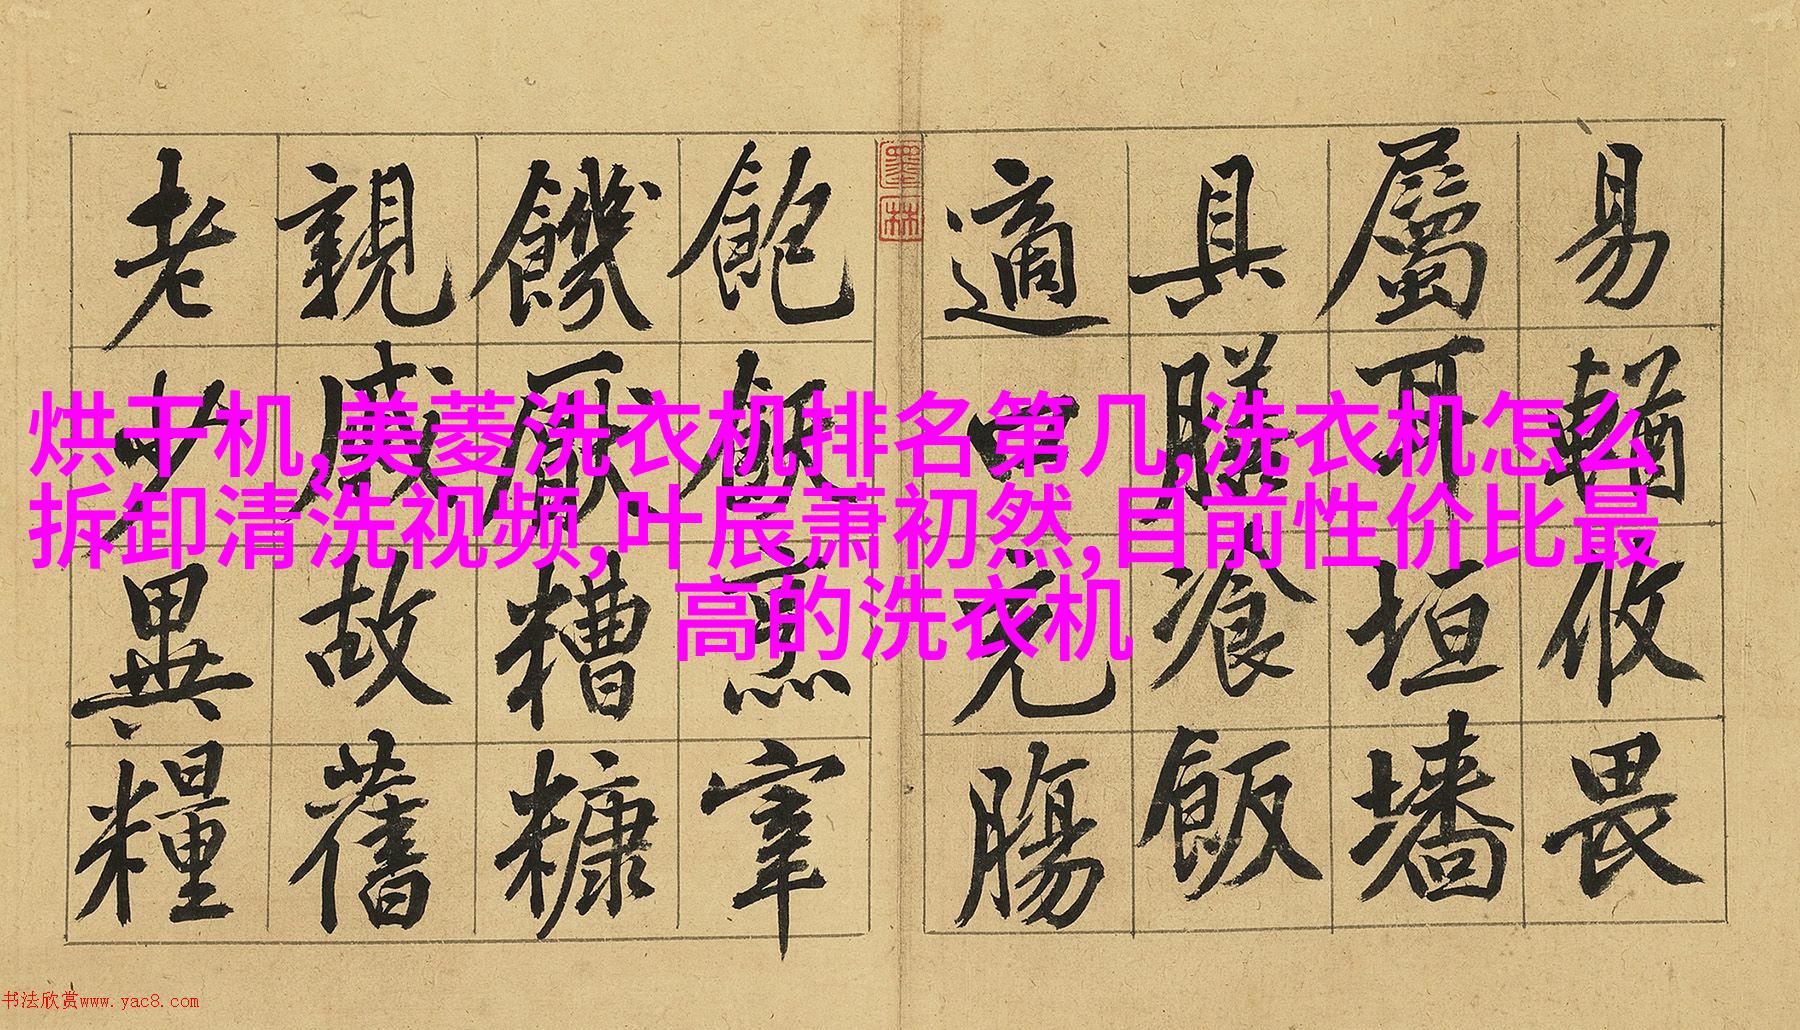 烘干机,美菱洗衣机排名第几,洗衣机怎么
拆卸清洗视频,叶辰萧初然,目前性价比最
高的洗衣机
易輶攸畏
屬耳垣墻
具膳飡飯
適口充腸
墨林
飽飫烹宰
饑厭糟糠
親戚故舊
老少異糧
书法欣赏www.yac8.com